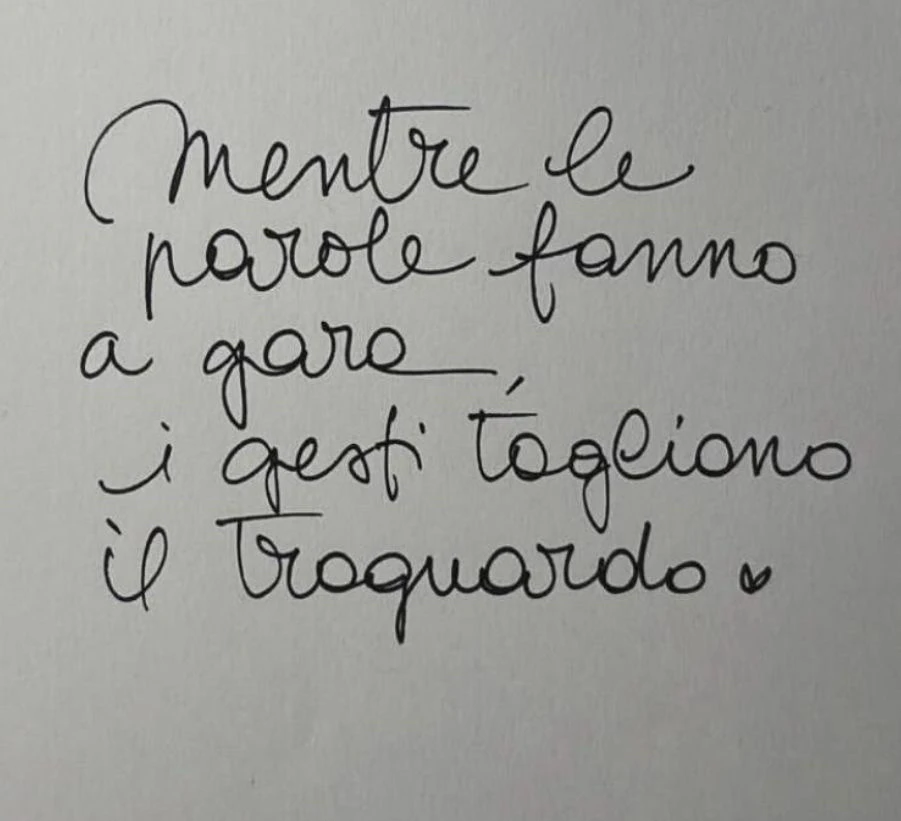 Mentre le
parole fanno
a gara,
i gesti tagliono
il traguardo ♥